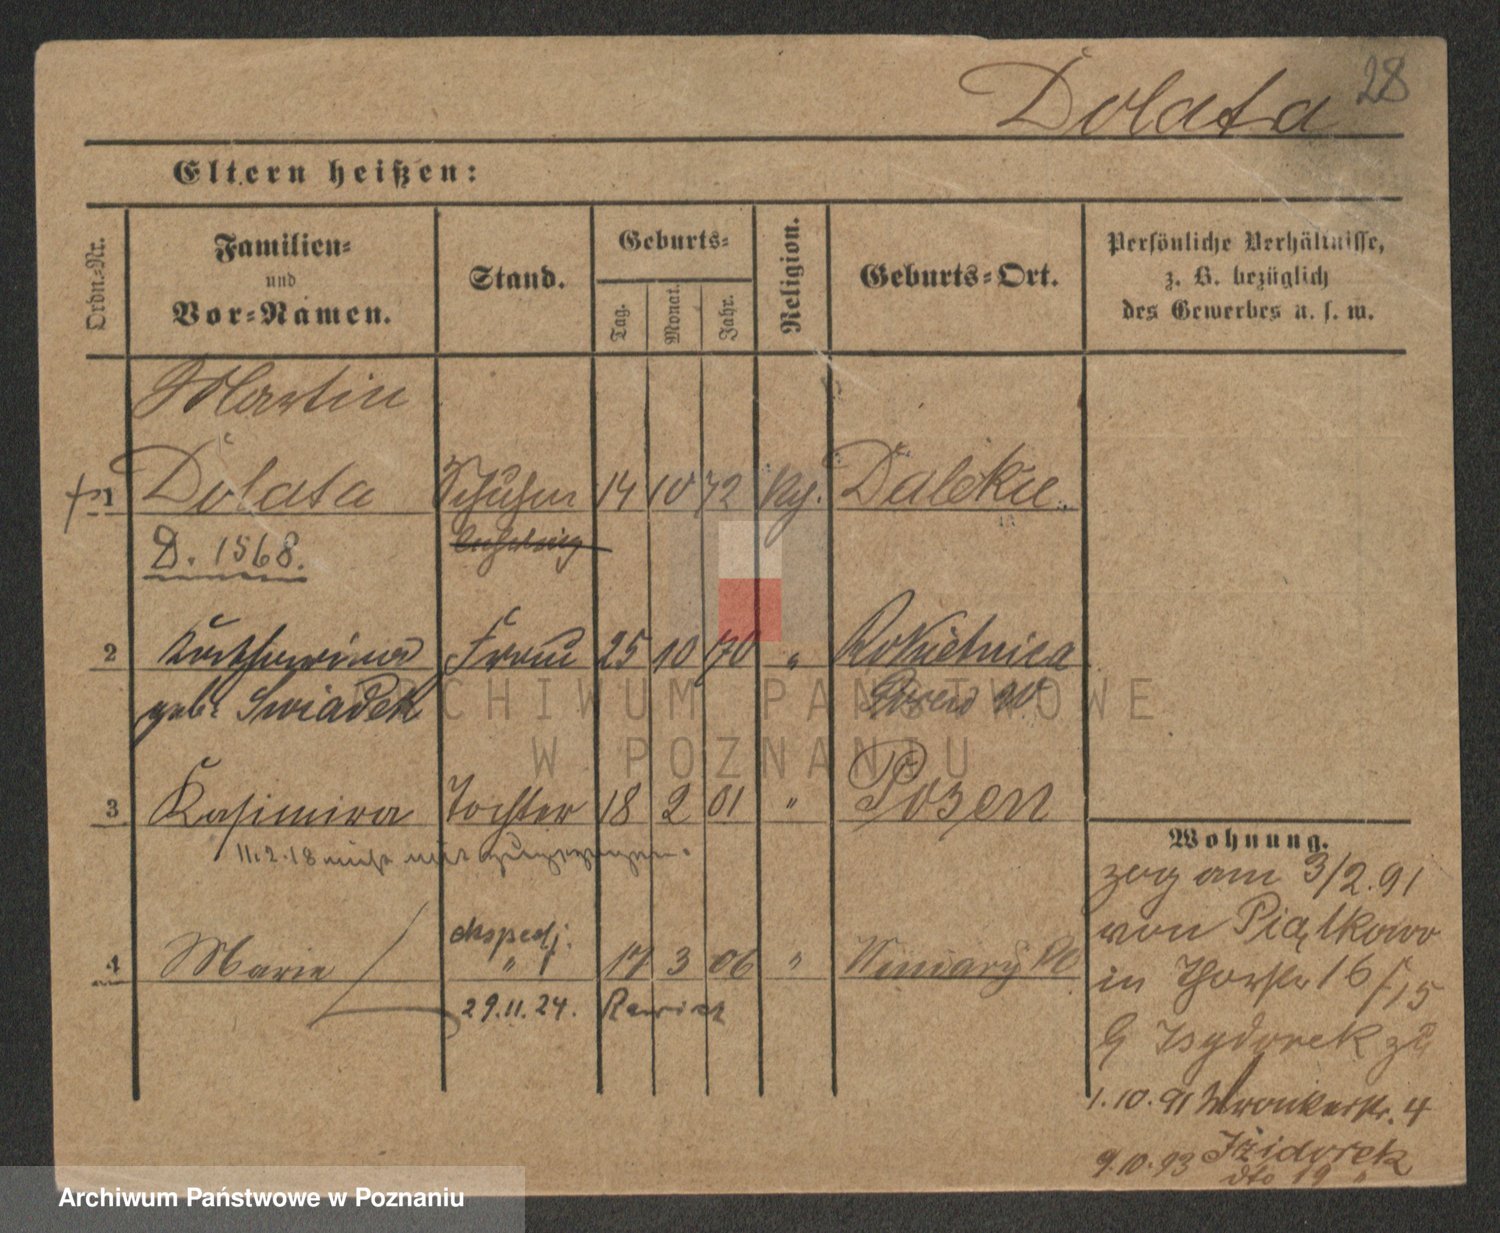 Dolata 28
Eltern heißen:
Ordn.-Nr.
Familien-
und
Vor-Namen.
Stand.
Geburts-
Tag.
Monat.
Jahr.
Religion.
Geburts-Ort.
Persönliche Verhältnisse,
z. B. bezüglich
des Gewerbes u. s. w.
Martin
1 Dolata Schuhm 14 10 72 Dalekie
D. 1568.
2 Katharina Frau 25 10 70 " Rokietnica
geb. Swiadek Posen W
3 Kasimira Tochter 18 2 01 " Posen
11.2.18 nicht mit zugezogen.
ekspedj.
4 Marie " 17 3 06 " Winiary
29.11.24. Rawicz
Wohnung.
zog am 3/2.91
von Piątkowo
in Thorstr 16
Isydorek
1.10.91 Wronkerstr. 4
9.10.93 Iżidorek
dto 19 "
ARCHIWUM PAŃSTWOWE
W POZNANIU
Archiwum Państwowe w Poznaniu